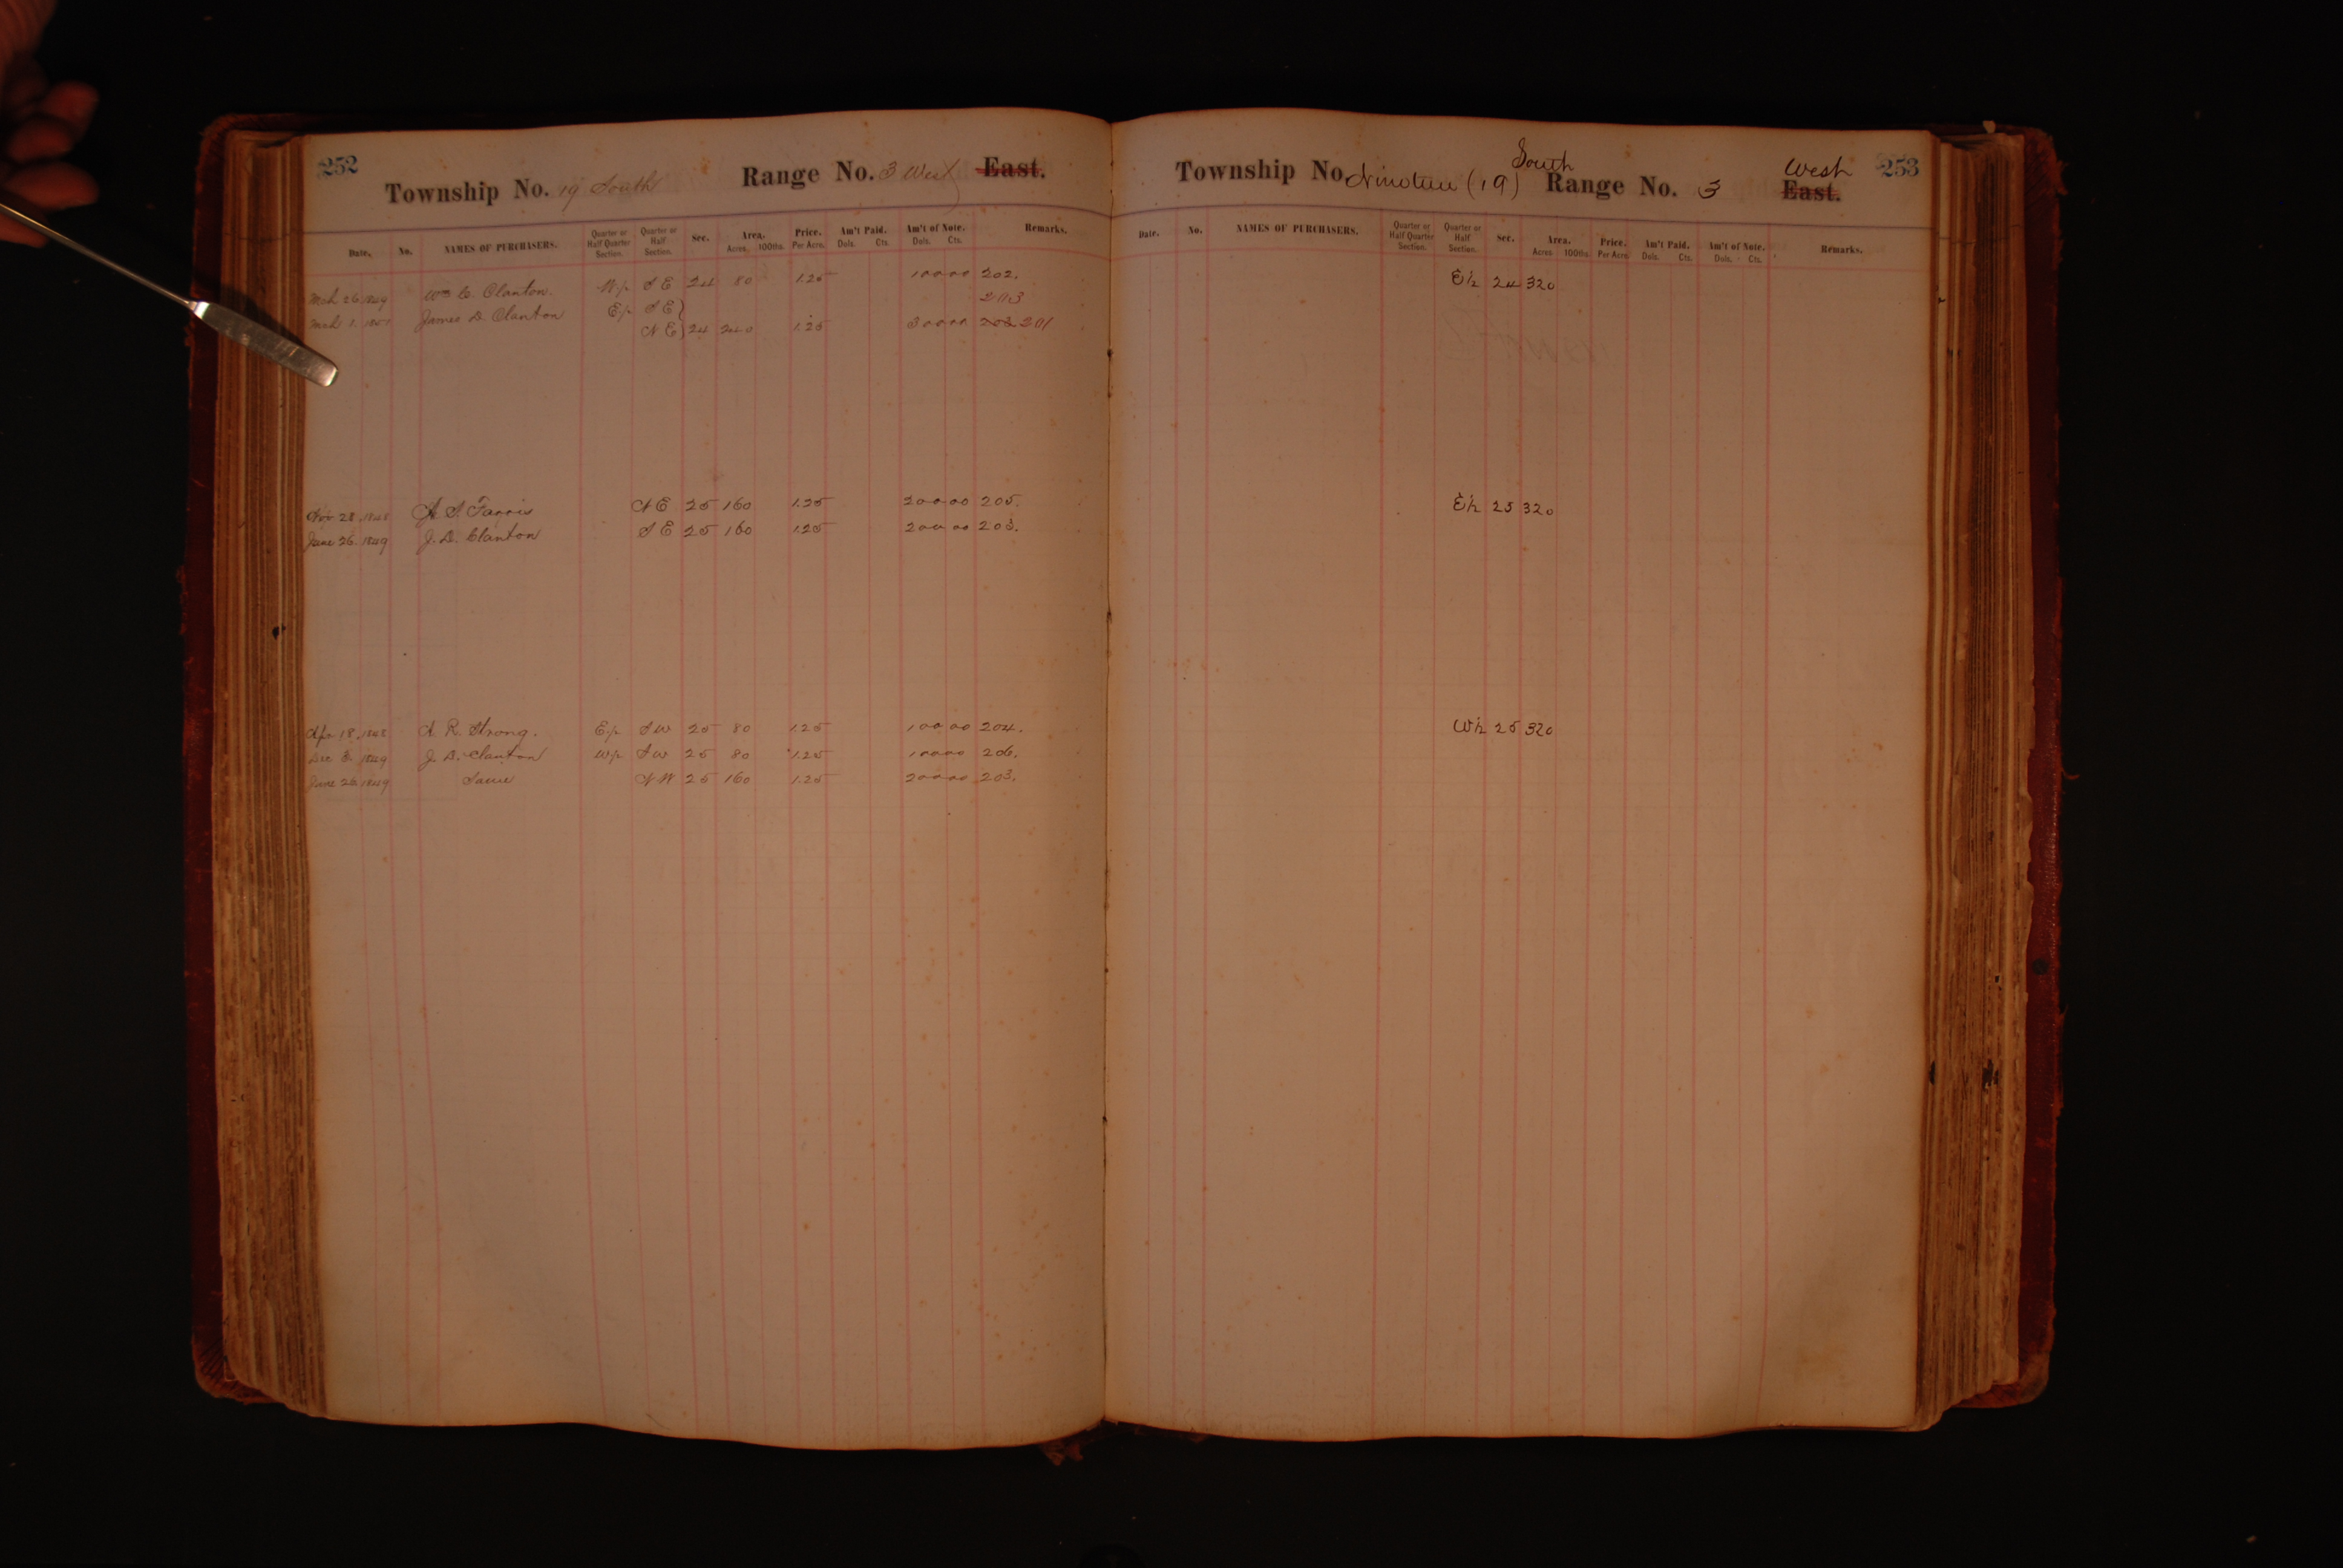 252
Township No. 19 South Range No. 3 West East.
Date. No. NAMES OF PURCHASERS. Quarter or Half Quarter Section. Quarter or Half Section. Sec. Area. Acres. 100ths. Price. Per Acre. Am't Paid. Dols. Cts. Am't of Note. Dols. Cts. Remarks.
Mch 26 1849 Wm C. Clanton. S E 24 80 1.25 100 00 202.
Mch 1. 1851 James D. Clanton E½ S E } 203
N E } 24 240 1.25 300 00 202 201
Nov 28, 1848 A. S. Farris N E 25 160 1.25 200 00 205.
June 26. 1849 J. D. Clanton S E 25 160 1.25 200 00 203.
Apr 18, 1848 A. R. Strong. E½ S W 25 80 1.25 100 00 204.
Dec 3. 1849 J. D. Clanton W½ S W 25 80 1.25 100 00 206.
June 26 1849 Same N W 25 160 1.25 200 00 203.
253
Township No. Nineteen (19) South Range No. 3 West East.
Date. No. NAMES OF PURCHASERS. Quarter or Half Quarter Section. Quarter or Half Section. Sec. Area. Acres. 100ths. Price. Per Acre. Am't Paid. Dols. Cts. Am't of Note. Dols. Cts. Remarks.
E½ 24 320
E½ 25 320
W½ 25 320